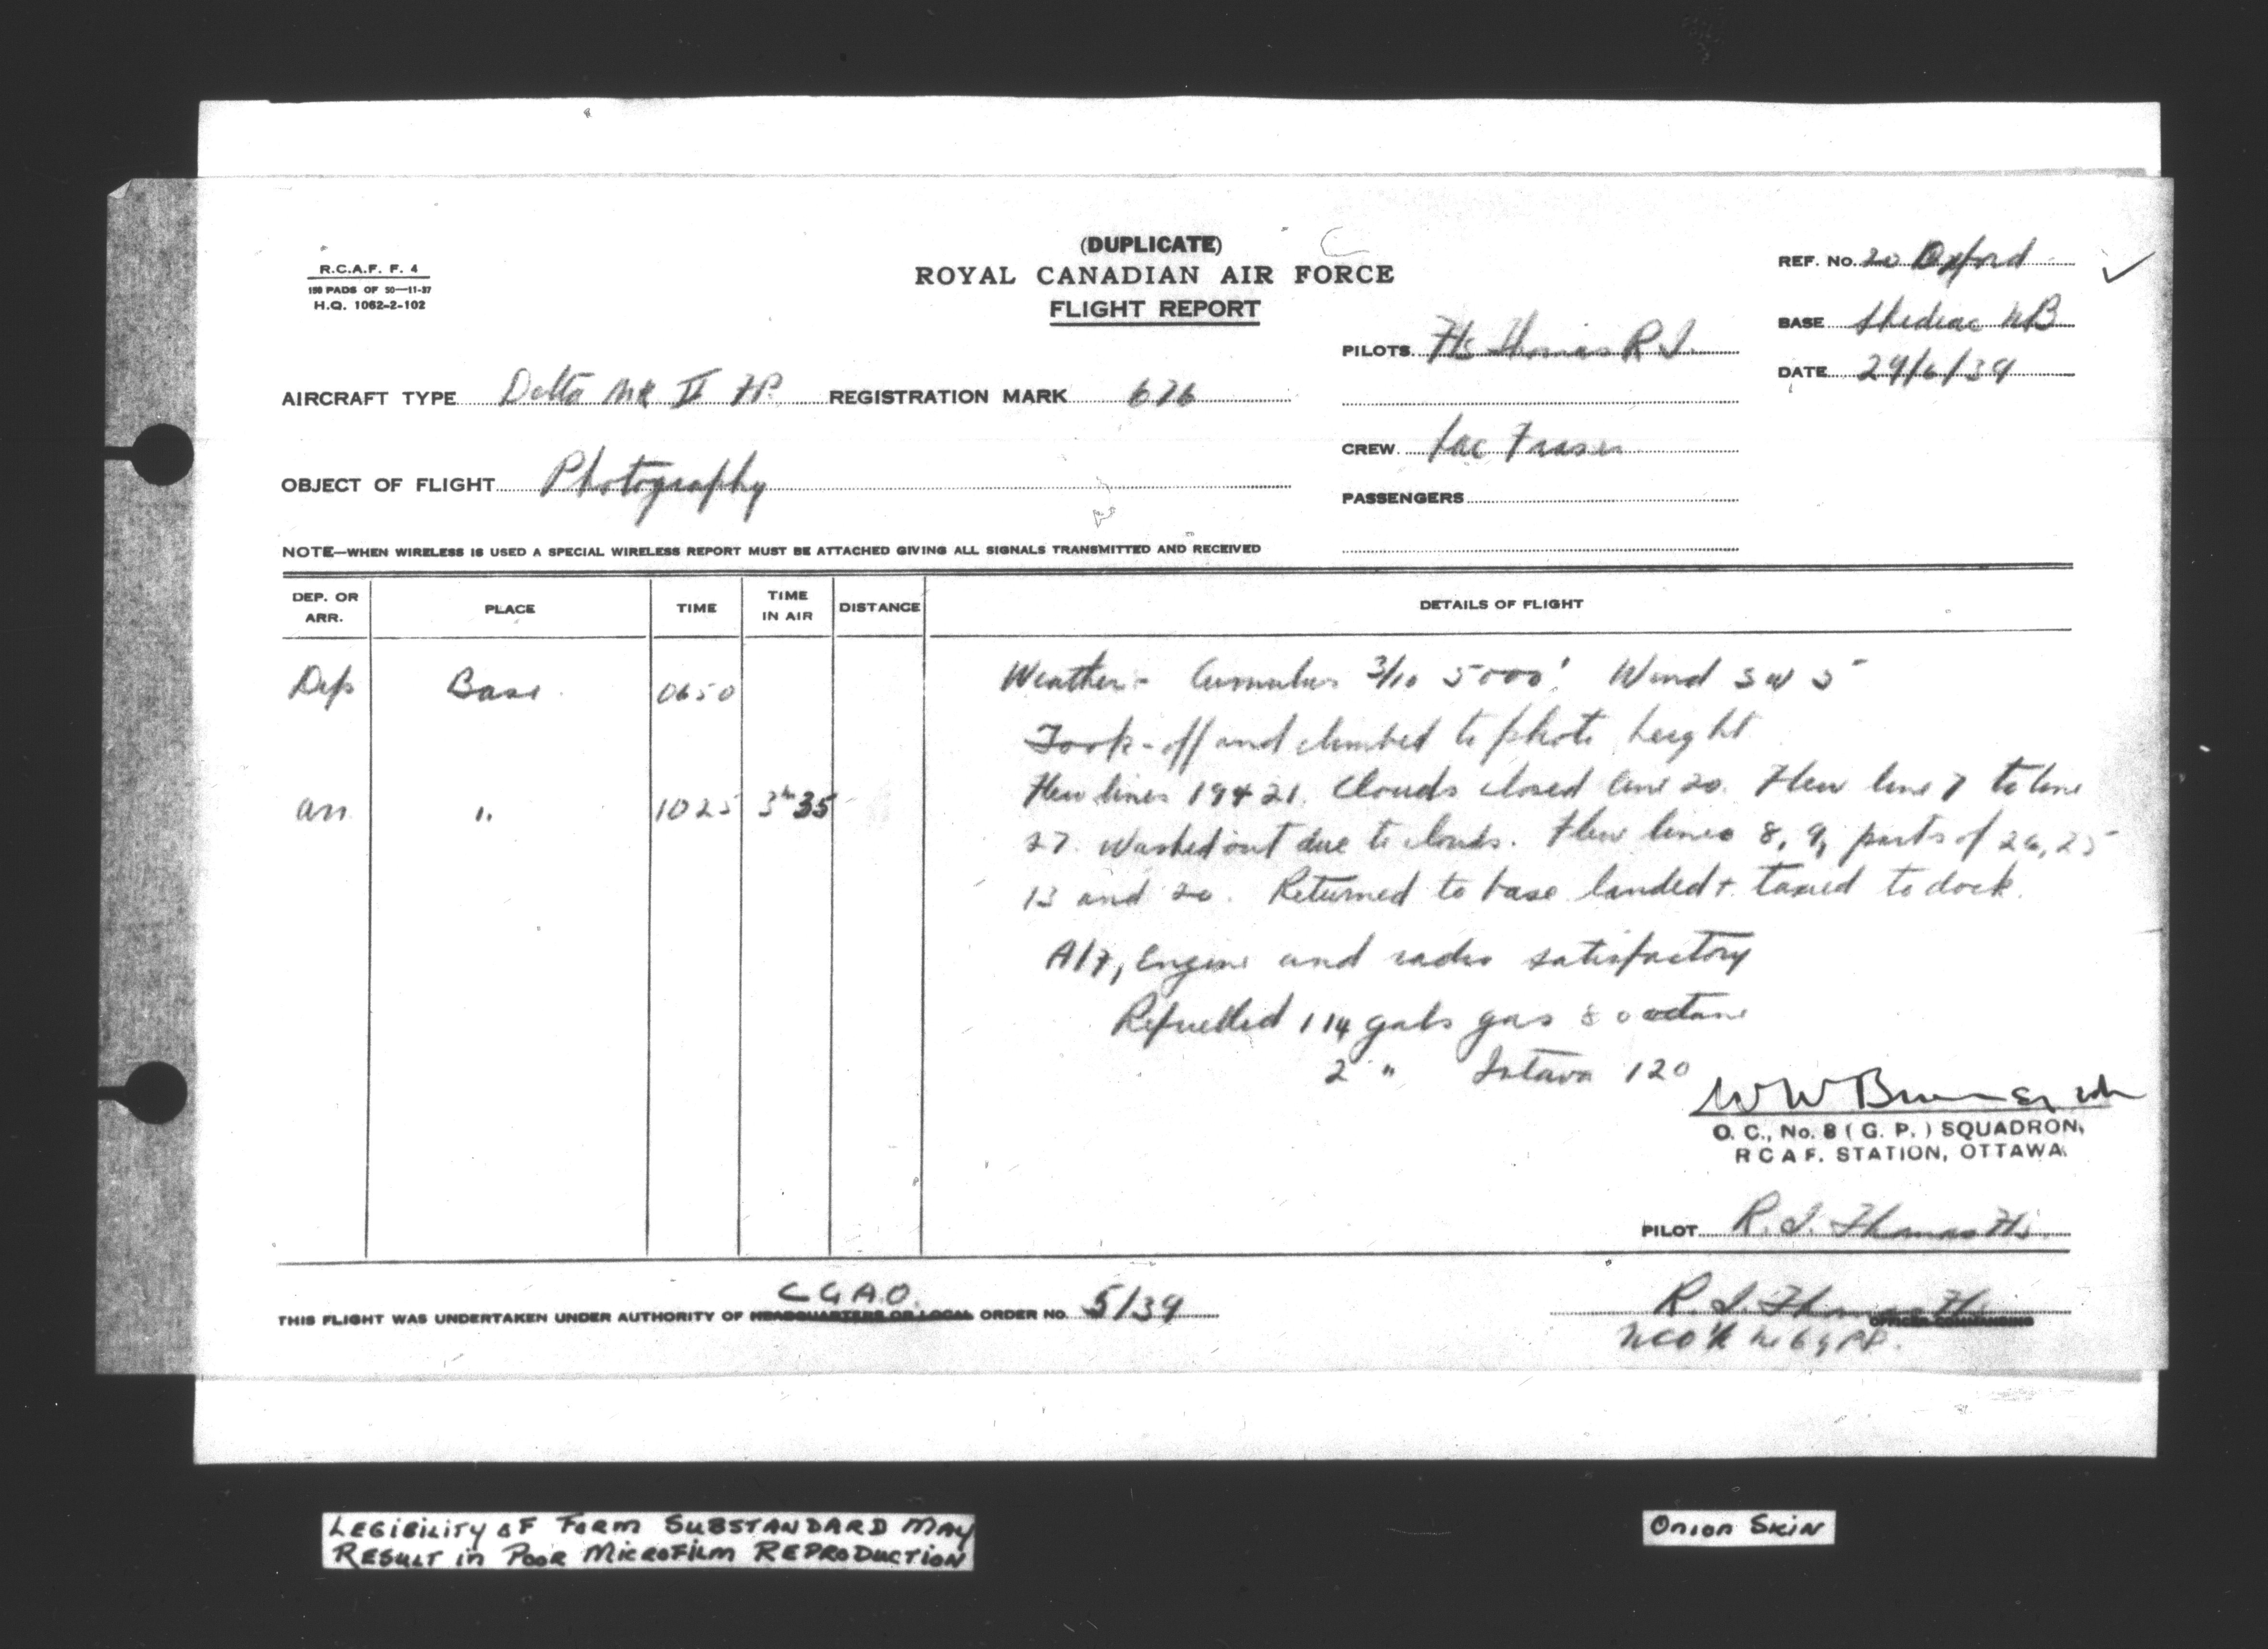 (DUPLICATE)
ROYAL CANADIAN AIR FORCE
FLIGHT REPORT
R.C.A.F. F. 4
150 PADS OF 50—11-37
H.Q. 1062-2-102
REF. No. 20 Oxford
BASE Shediac NB
DATE 29/6/39
PILOTS Thomas R.I.
AIRCRAFT TYPE Delta Mk II FP. REGISTRATION MARK 676
CREW Lac Fraser
OBJECT OF FLIGHT Photography
PASSENGERS
NOTE—WHEN WIRELESS IS USED A SPECIAL WIRELESS REPORT MUST BE ATTACHED GIVING ALL SIGNALS TRANSMITTED AND RECEIVED
DEP. OR ARR. PLACE TIME TIME IN AIR DISTANCE DETAILS OF FLIGHT
Dep Base 0650
arr " 1025 3hr 35
Weather:- Cumulus 3/10 5000' Wind SW 5
Took-off and climbed to photo height
Flew lines 19 & 21. Clouds closed line 20. Flew line 7 to line
27. Washed out due to clouds. Flew lines 8, 9, parts of 26, 25
13 and 20. Returned to base landed + taxied to dock.
A/F, Engine and radio satisfactory
Refuelled 114 gals gas 80 octane
2 " Intava 120
W W B
O. C., No. 8 ( G. P. ) SQUADRON,
R C A F. STATION, OTTAWA.
PILOT R. I. Thomas
C G A O.
THIS FLIGHT WAS UNDERTAKEN UNDER AUTHORITY OF HEADQUARTERS OR LOCAL ORDER NO. 5/39
R. I. Thomas
OFFICER COMMANDING
LEGIBILITY OF FORM SUBSTANDARD MAY
RESULT IN POOR MICROFILM REPRODUCTION
ONION SKIN